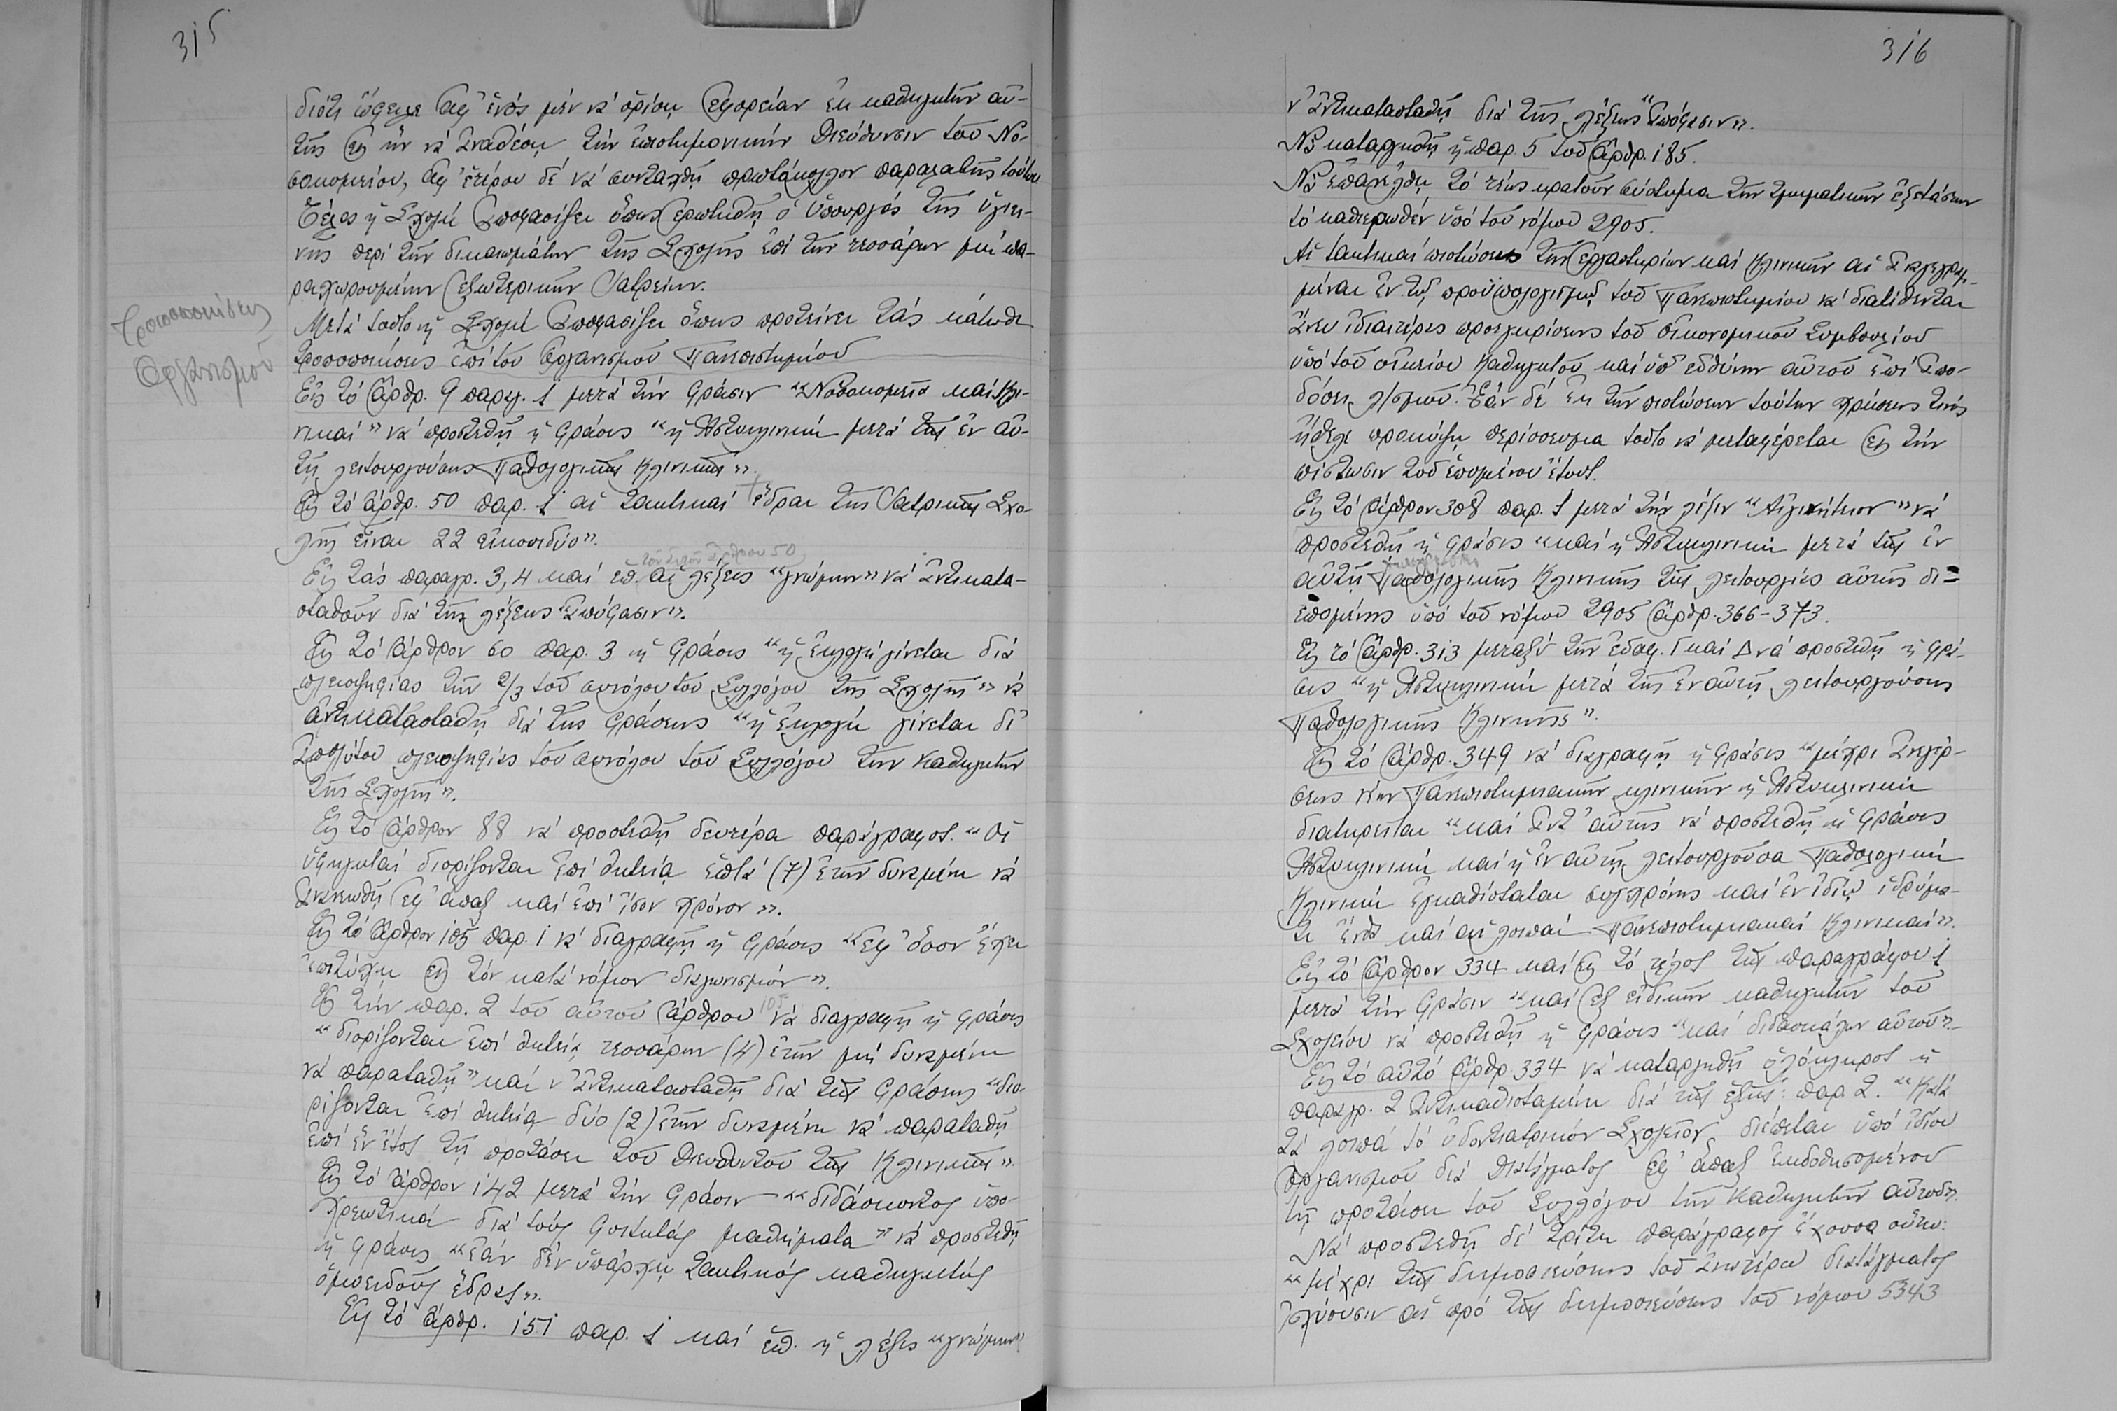 315
διότι ὤφειλε ἀφ' ἑνός μέν νά ὁρίσῃ ἐφορείαν ἐκ καθηγητῶν αὐ-
τῆς εἰς ἥν νά ἀναθέσῃ τήν ἐπιστημονικήν διεύθυνσιν τοῦ Νο-
σοκομείου, ἀφ' ἑτέρου δέ νά συνταχθῇ πρωτόκολλον παραλαβῆς τούτου
Τέλος ἡ Σχολή ἀποφασίζει ὅπως ἐρωτηθῇ ὁ Ὑπουργός τῆς ὑγιει-
νῆς περί τῶν δικαιωμάτων τῆς Σχολῆς ἐπί τῶν τεσσάρων μή πα-
ραχωρουμένων ἐξωτερικῶν ἰατρείων.
Μετά τοῦτο ἡ Σχολή ἀποφασίζει ὅπως προτείνει τάς κάτωθι
τροποποιήσεις ἐπί τοῦ ὀργανισμοῦ Πανεπιστημίου
Τροποποιήσεις
Ὀργανισμοῦ
Εἰς τό ἄρθρ. 9 παραγ. 1 μετά τήν φράσιν "Νοσοκομεῖα καί Κλι-
νικαί" νά προστεθῇ ἡ φράσις "ἡ Ἀστυκλινική μετά τῆς ἐν αὐ-
τῇ λειτουργούσης Παθολογικῆς Κλινικῆς".
Εἰς τό ἄρθρ. 50 παρ. 1 αἱ τακτικαί ἕδραι τῆς Ἰατρικῆς Σχο-
λῆς εἶναι 22 εἰκοσιδύο".
τοῦ αὐτοῦ ἄρθρου 50
Εἰς τάς παραγρ. 3, 4 καί ἑπ. αἱ λέξεις "γνώμην" νά ἀντικατα-
σταθοῦν διά τῆς λέξεως "ἀπόφασιν".
Εἰς τό ἄρθρον 60 παρ. 3 ἡ φράσις "ἡ ἐκλογή γίνεται διά
πλειοψηφίας τῶν 2/3 τοῦ συνόλου τοῦ Συλλόγου τῆς Σχολῆς" νά
ἀντικατασταθῇ διά τῆς φράσεως "ἡ ἐκλογή γίνεται δι'
ἀπολύτου πλειοψηφίας τοῦ συνόλου τοῦ Συλλόγου τῶν Καθηγητῶν
τῆς Σχολῆς".
Εἰς τό ἄρθρον 88 νά προστεθῇ δευτέρα παράγραφος. "Οἱ
ὑφηγηταί διορίζονται ἐπί θητείᾳ ἑπτά (7) ἐτῶν δυναμένῃ νά
ἀνανεωθῇ ἐφ' ἅπαξ καί ἐπί ἴσον χρόνον".
Εἰς τό ἄρθρον 105 παρ. 1 νά διαγραφῇ ἡ φράσις "ἐφ' ὅσον ἔχει
ἐπιτύχει εἰς τόν κατά νόμον διαγωνισμόν".
Εἰς τήν παρ. 2 τοῦ αὐτοῦ ἄρθρου 105 νά διαγραφῇ ἡ φράσις
"διορίζονται ἐπί θητείᾳ τεσσάρων (4) ἐτῶν μή δυναμένῃ
νά παραταθῇ" καί ν' ἀντικατασταθῇ διά τῆς φράσεως "διο-
ρίζονται ἐπί θητείᾳ δύο (2) ἐτῶν δυναμένῃ νά παραταθῇ
ἐπί ἕν ἔτος τῇ προτάσει τοῦ Διευθυντοῦ τῆς Κλινικῆς".
Εἰς τό ἄρθρον 142 μετά τήν φράσιν "διδάσκοντος ὑπο-
χρεωτικά διά τούς φοιτητάς μαθήματα" νά προστεθῇ
ἡ φράσις "ἐάν δέν ὑπάρχῃ τακτικός καθηγητής
ὁμοειδοῦς ἕδρας".
Εἰς τό ἄρθρ. 151 παρ. 1 καί ἑπ. ἡ λέξις "γνώμην"
316
ν' ἀντικατασταθῇ διά τῆς λέξεως "ἀπόφασιν".
Νά καταργηθῇ ἡ παρ. 5 τοῦ ἄρθρ. 185.
Νά ἐπανέλθῃ τό τέως κρατοῦν σύστημα τῶν τμηματικῶν ἐξετάσεων
τό καθιερωθέν ὑπό τοῦ νόμου 2905.
Αἱ τακτικαί πιστώσεις τῶν ἐργαστηρίων καί Κλινικῶν αἱ ἀναγεγραμ-
μέναι ἐν τῷ προϋπολογισμῷ τοῦ Πανεπιστημίου νά διατίθενται
ἄνευ ἰδιαιτέρας προεγκρίσεως τοῦ οἰκονομικοῦ Συμβουλίου
ὑπό τοῦ οἰκείου Καθηγητοῦ καί ὑπ' εὐθύνην αὐτοῦ ἐπί ἀπο-
δόσει λ/σμοῦ. Ἐάν δέ ἐκ τῶν πιστώσεων τούτων χρήσεώς τινός
ἤθελε προκύψῃ περίσσευμα τοῦτο νά μεταφέρεται εἰς τήν
πίστωσιν τοῦ ἑπομένου ἔτους.
Εἰς τό ἄρθρον 308 παρ. 1 μετά τήν λέξιν "Αἰγινήτειον" νά
προστεθῇ ἡ φράσις "καί ἡ Ἀστυκλινική μετά τῆς ἐν
αὐτῇ Παθολογικῆς Κλινικῆς τῆς λειτουργίας αὐτῆς δι-
επομένης ὑπό τοῦ νόμου 2905 ἄρθρ. 366-373.
Εἰς τό ἄρθρ. 313 μεταξύ τῶν ἐδαφ. Γ καί Δ νά προστεθῇ ἡ φρά-
σις "ἡ Ἀστυκλινική μετά τῆς ἐν αὐτῇ λειτουργούσης
Παθολογικῆς Κλινικῆς".
Εἰς τό ἄρθρ. 349 νά διαγραφῇ ἡ φράσις "μέχρι ἀνεγέρ-
σεως νέων Πανεπιστημιακῶν κλινικῶν ἡ Ἀστυκλινική
διατηρεῖται" καί ἀντ' αὐτῆς νά προστεθῇ ἡ φράσις
Ἀστυκλινική καί ἡ ἐν αὐτῇ λειτουργοῦσα Παθολογική
Κλινική ἐγκαθίσταται συγχρόνως καί ἐν ἰδίῳ ἱδρύμα-
τι ἔνθα καί αἱ λοιπαί Πανεπιστημιακαί Κλινικαί".
Εἰς τό ἄρθρον 334 καί εἰς τό τέλος τῆς παραγράφου 1
μετά τήν φράσιν "καί ἐξ εἰδικῶν καθηγητῶν τοῦ
Σχολείου νά προστεθῇ ἡ φράσις "καί διδασκάλων αὐτοῦ"
Εἰς τό αὐτό ἄρθρ. 334 νά καταργηθῇ ὁλόκληρος ἡ
παραγρ. 2 ἀντικαθισταμένη διά τῆς ἑξῆς: παρ. 2. "Κατά
τά λοιπά τό ὀδοντιατρικόν Σχολεῖον διέπεται ὑπό ἰδίου
ὀργανισμοῦ διά διατάγματος ἐφ' ἅπαξ ἐκδοθησομένου
τῇ προτάσει τοῦ Συλλόγου τῶν Καθηγητῶν αὐτοῦ".
Νά προστεθῇ δέ τρίτη παράγραφος ἔχουσα οὕτω:
"μέχρι τῆς δημοσιεύσεως τοῦ ἀνωτέρω διατάγματος
ἰσχύουσιν αἱ πρό τῆς δημοσιεύσεως τοῦ νόμου 5343